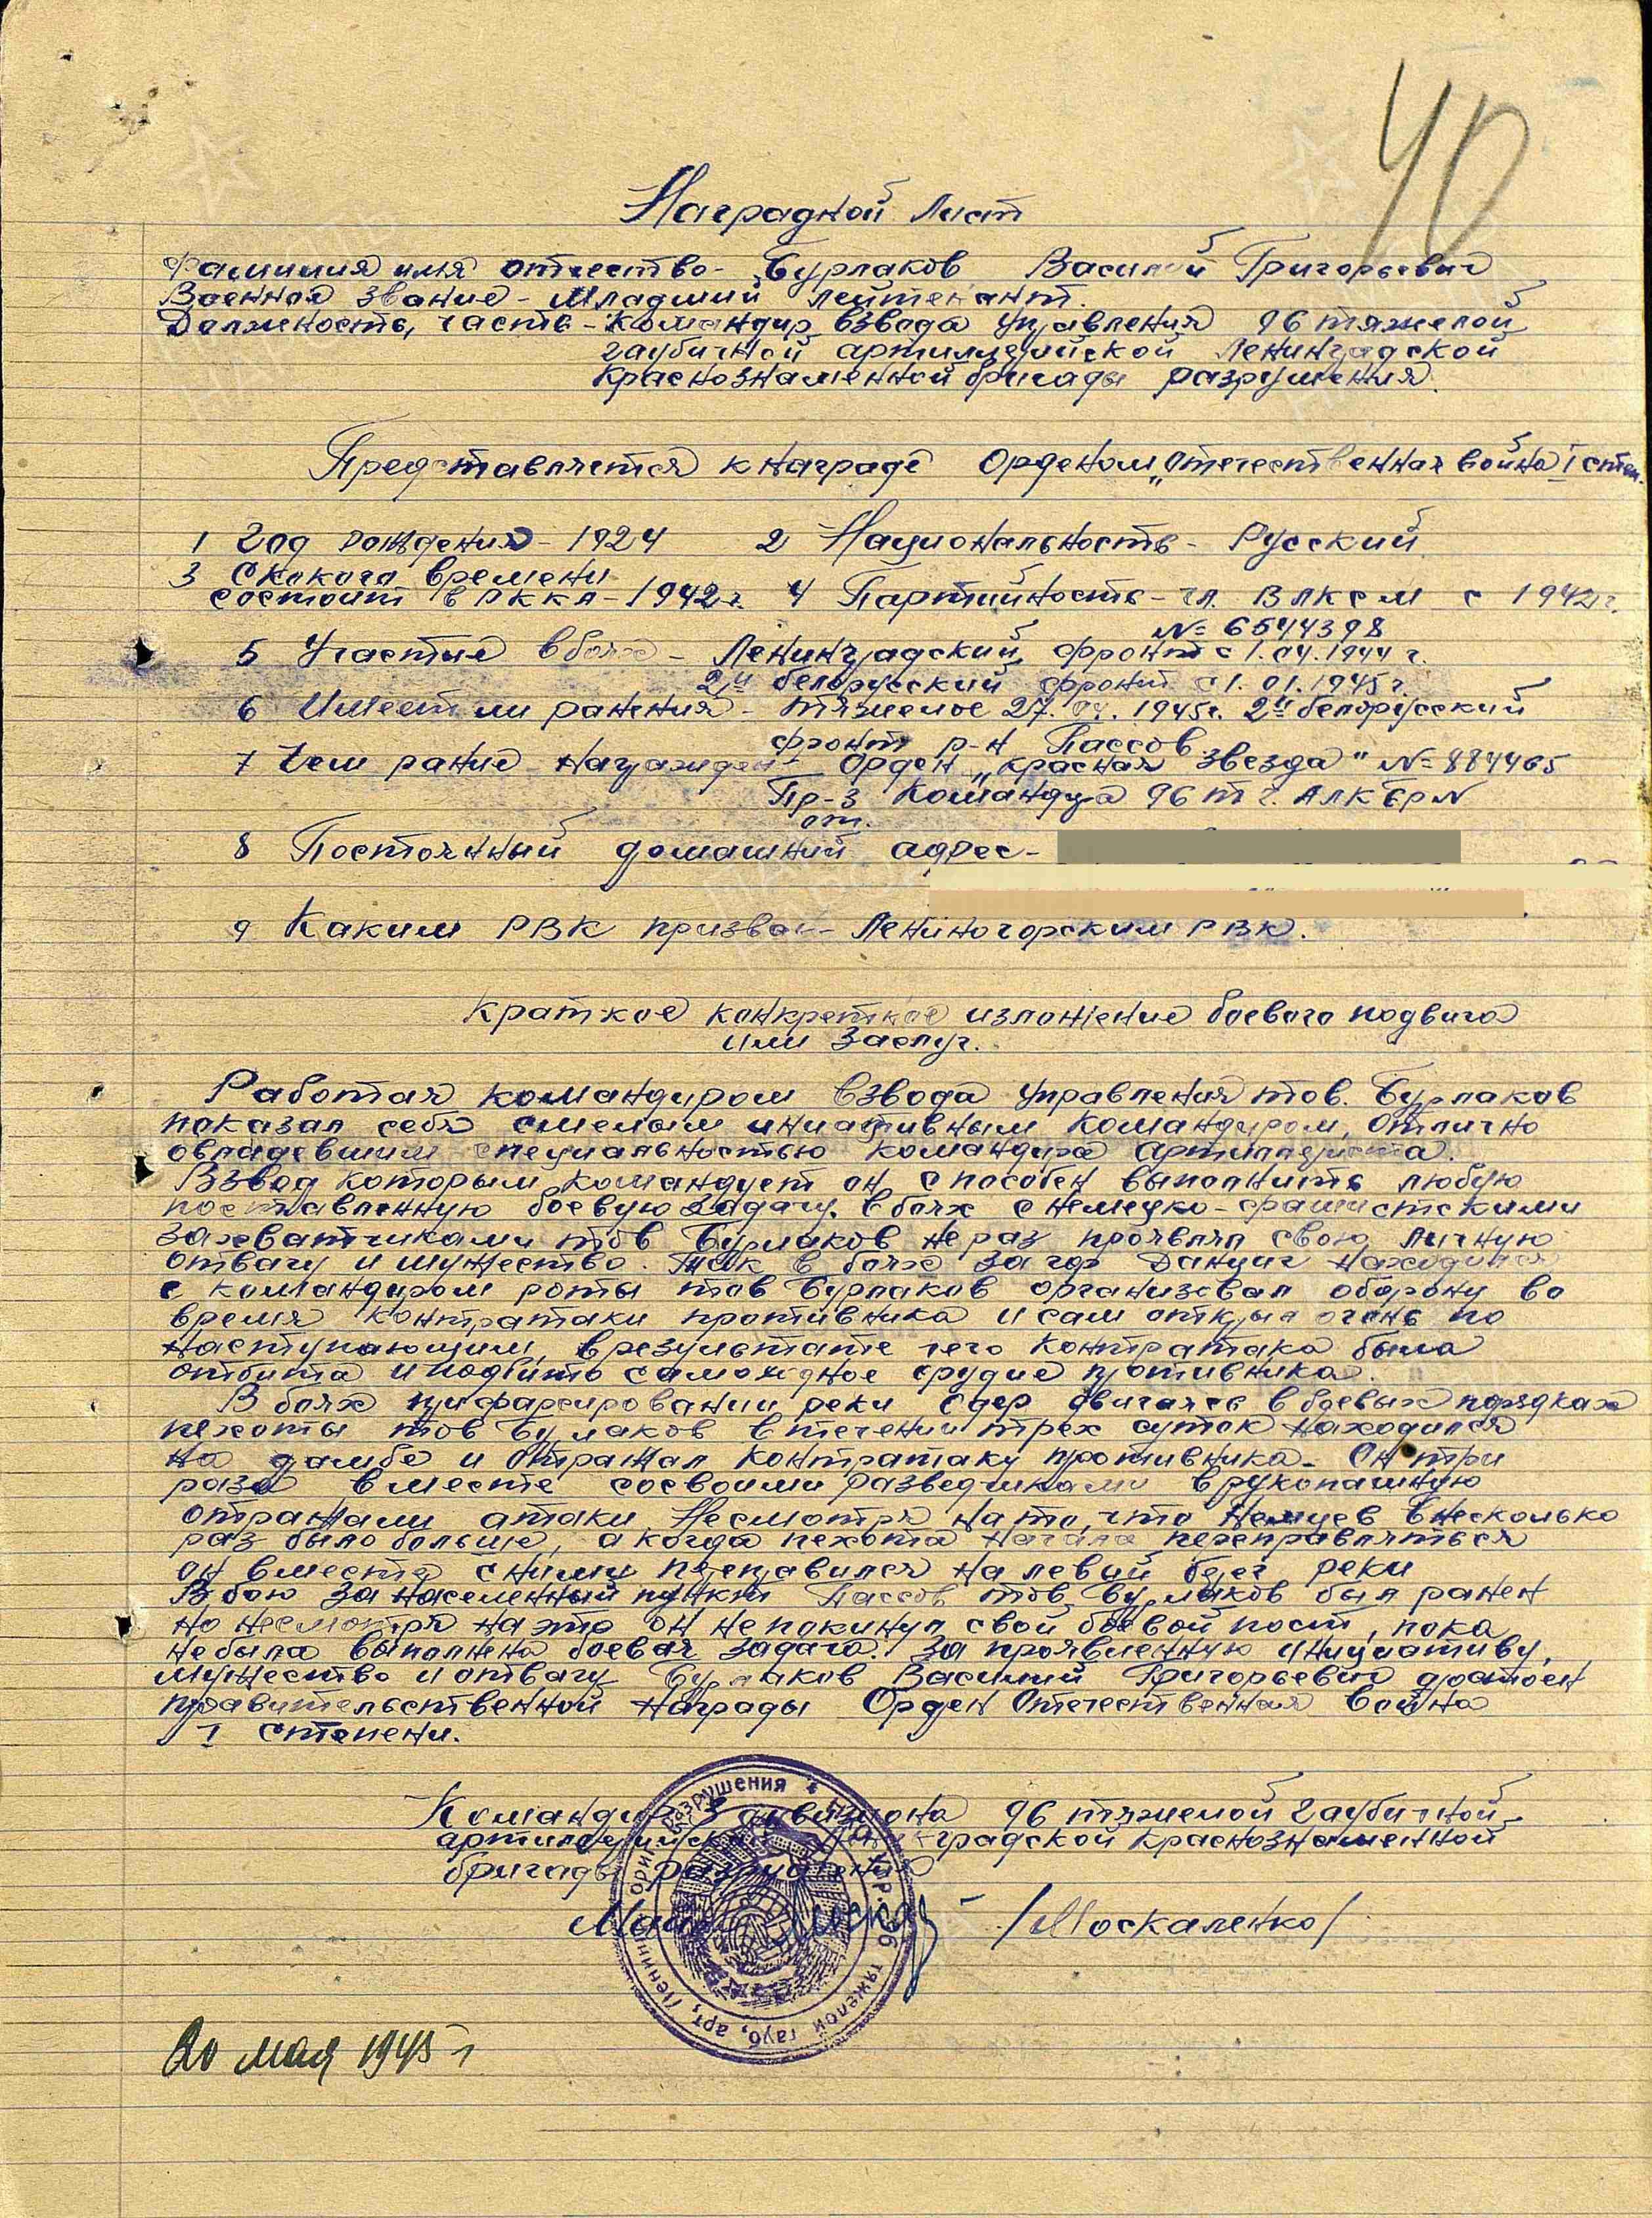 40
Наградной лист
Фамилия имя отчество - Бурлаков Василий Григорьевич
Военная звание - Младший лейтенант.
Должность, часть - Командир взвода управления 96 тяжелой
гаубичной артиллерийской Ленинградской
Краснознаменной бригады разрушения.
Представляется к награде Орденом „Отечественная война I степ.
1 Год рождения - 1924 2 Национальность - Русский
3 С какого времени
состоит в РККА - 1942 г. 4 Партийность - чл. ВЛКСМ с 1942 г.
№ 6544398
5 Участие в боях - Ленинградский фронт с 1.04.1944 г.
2й белорусский фронт с 1.01.1945 г.
6 Имеет ли ранения - тяжелое 27.04.1945г. 2й белорусский
фронт р-н Пассов.
7 Чем ранее награжден - Орден „Красная звезда" № 884465
Пр-з Командира 96 тг. АЛКБР №
от.
8 Постоянный домашний адрес -
9 Каким РВК призван - Лениногорским РВК.
Краткое конкретное изложение боевого подвига
или заслуг.
Работая командиром взвода управления тов. Бурлаков
показал себя смелым инициативным командиром, отлично
овладевшим специальностью командира артиллериста.
Взвод которым командует он способен выполнить любую
поставленную боевую задачу. В боях с немецко-фашистскими
захватчиками тов Бурлаков не раз проявлял свою личную
отвагу и мужество. Так в боях за гор Данциг находился
с командиром роты тов Бурлаков организовал оборону во
время контратаки противника и сам открыл огонь по
наступающим, в результате чего контратака была
отбита и подбито самоходное орудие противника.
В боях при форсировании реки Одер двигаясь в боевых порядках
пехоты тов Бурлаков в течении трех суток находился
на дамбе и отражал контратаку противника. Он три
раза вместе со своими разведчиками в рукопашную
отражали атаки. Несмотря на то, что немцев в несколько
раз было больше, а когда пехота начала переправляться
он вместе с ними переправился на левый берег реки
В бою за населенный пункт Пассов тов. Бурлаков был ранен
но несмотря на это он не покинул свой боевой пост, пока
не была выполнена боевая задача. За проявленную инициативу,
мужество и отвагу Бурлаков Василий Григорьевич достоен
правительственной награды Орден Отечественная война
I степени.
Командир 3 дивизиона 96 тяжелой гаубичной
артиллерийской Ленинградской Краснознаменной
бригады разрушения
/Москаленко/
20 мая 1945 г